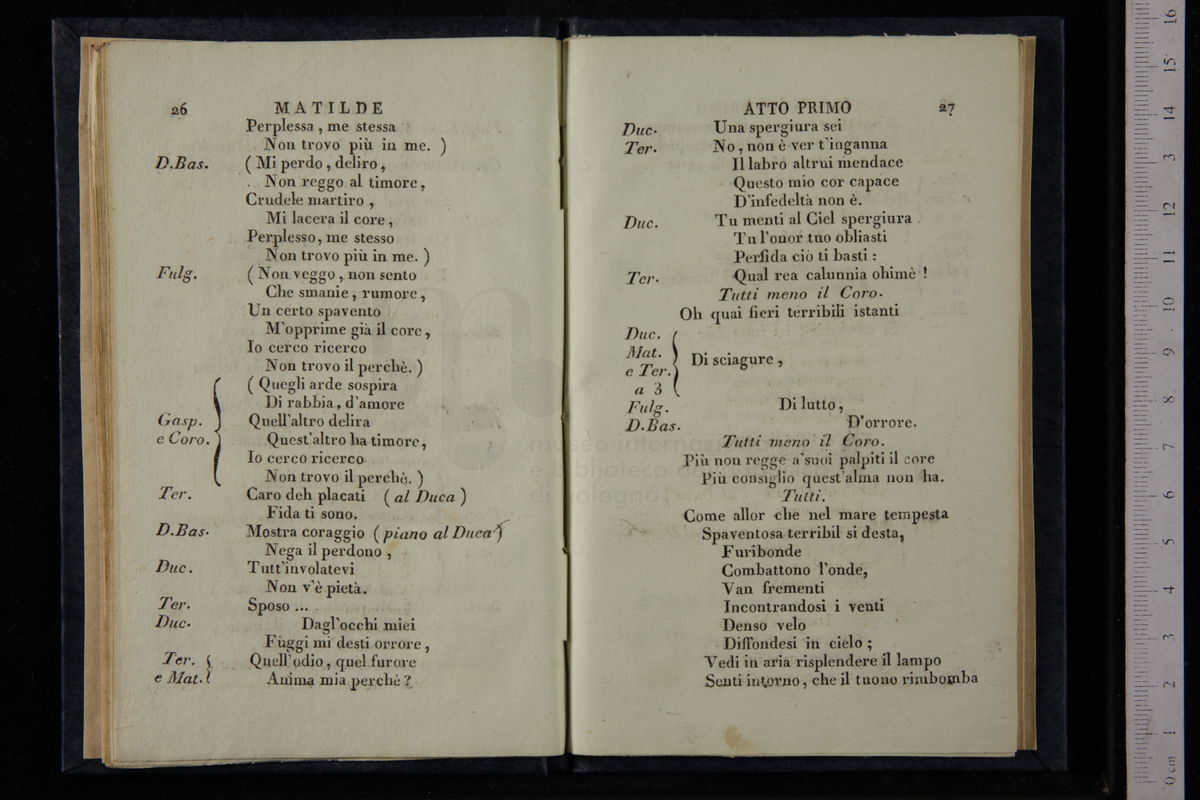 26 MATILDE
Perplessa , me stessa
Non trovo più in me. )
D.Bas. ( Mi perdo , deliro ,
Non reggo al timore ,
Crudele martiro ,
Mi lacera il core ,
Perplesso , me stesso
Non trovo più in me. )
Fulg. ( Non veggo , non sento
Che smanie , rumore ,
Un certo spavento
M'opprime già il core ,
Io cerco ricerco
Non trovo il perchè. )
( Quegli arde sospira
Di rabbia , d'amore
Gasp. Quell'altro delira
e Coro. Quest'altro ha timore,
Io cerco ricerco
Non trovo il perchè. )
Ter. Caro deh placati ( al Duca )
Fida ti sono.
D.Bas. Mostra coraggio ( piano al Duca )
Nega il perdono ,
Duc. Tutt'involatevi
Non v'è pietà.
Ter. Sposo ...
Duc. Dagl'occhi miei
Fuggi mi desti orrore ,
Ter. Quell'odio , quel furore
e Mat. Anima mia perchè ?
ATTO PRIMO 27
Duc. Una spergiura sei
Ter. No , non è ver t'inganna
Il labro altrui mendace
Questo mio cor capace
D'infedeltà non è.
Duc. Tu menti al Ciel spergiura
Tu l'onor tuo obliasti
Perfida ciò ti basti :
Ter. Qual rea calunnia ohimè !
Tutti meno il Coro.
Oh quai fieri terribili istanti
Duc.
Mat. Di sciagure ,
e Ter.
a 3
Fulg. Di lutto ,
D.Bas. D'orrore.
Tutti meno il Coro.
Più non regge a'suoi palpiti il core
Più consiglio quest'alma non ha.
Tutti.
Come allor che nel mare tempesta
Spaventosa terribil si desta,
Furibonde
Combattono l'onde,
Van frementi
Incontrandosi i venti
Denso velo
Diffondesi in cielo ;
Vedi in aria risplendere il lampo
Senti intorno , che il tuono rimbomba
museo internaz
e biblioteca d
di bologna
0 cm 1 2 3 4 5 6 7 8 9 10 11 12 13 14 15 16